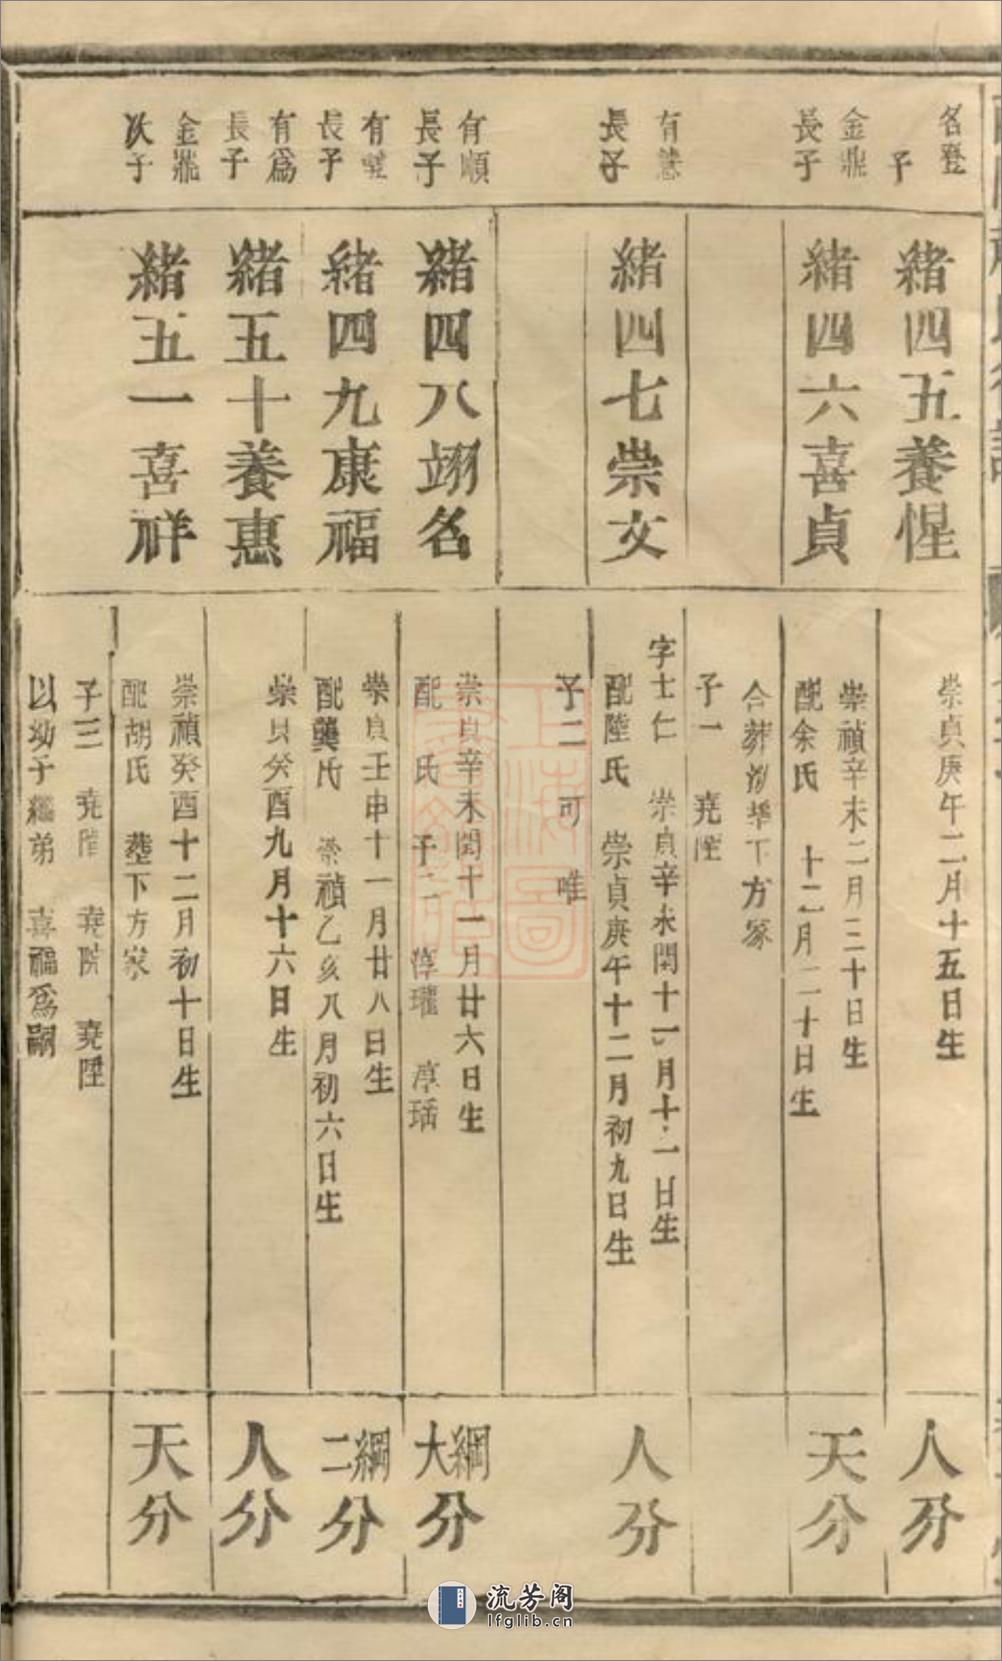 名登
子
緒四五養惺
崇貞庚午二月十五日生
人分
金鼎
長子
緒四六喜貞
崇禎辛未二月三十日生
配余氏 十二月二十日生
合葬 下方冢
子一 堯陞
天分
有慧
長子
緒四七崇文
字士仁 崇貞辛未閏十一月十一日生
配陸氏 崇貞庚午十二月初九日生
子二 可 唯
人分
有順
長子
緒四八翊名
崇貞辛未閏十一月廿六日生
配 氏 子二 淳瓏 淳
大綱分
有
長子
緒四九康福
崇貞壬申十一月廿八日生
配龔氏 崇禎乙亥八月初六日生
二綱分
有為
長子
緒五十養惠
崇貞癸酉九月十六日生
人分
金鼎
次子
緒五一喜祥
崇禎癸酉十二月初十日生
配胡氏 葬下方冢
子三 堯陛 堯 堯陞
以幼子繼弟 喜福為嗣
天分
上海圖書館藏
流芳阁
lfglib.cn